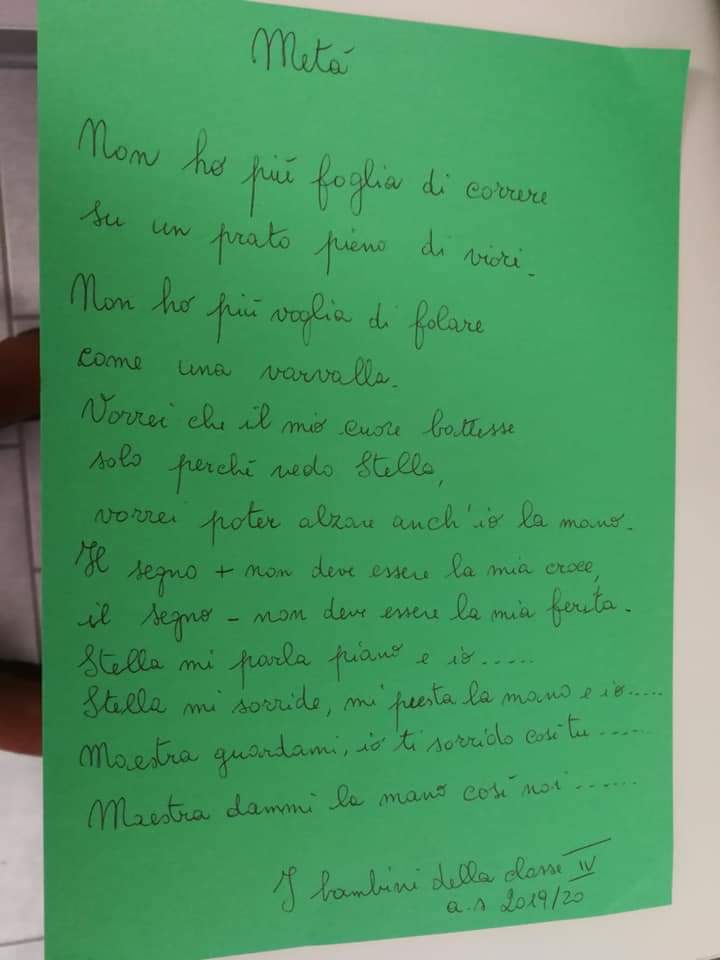 Metá
Non ho più foglia di correre
su un prato pieno di viori.
Non ho più voglia di folare
come una varvalla.
Vorrei che il mio cuore battesse
solo perché vedo Stella,
vorrei poter alzare anch'io la mano.
Il segno + non deve essere la mia croce,
il segno - non deve essere la mia ferita.
Stella mi parla piano e io.....
Stella mi sorride, mi presta la mano e io.....
Maestra guardami, io ti sorrido così tu .....
Maestra dammi la mano così noi ......
I bambini della classe IV
a.s 2019/20